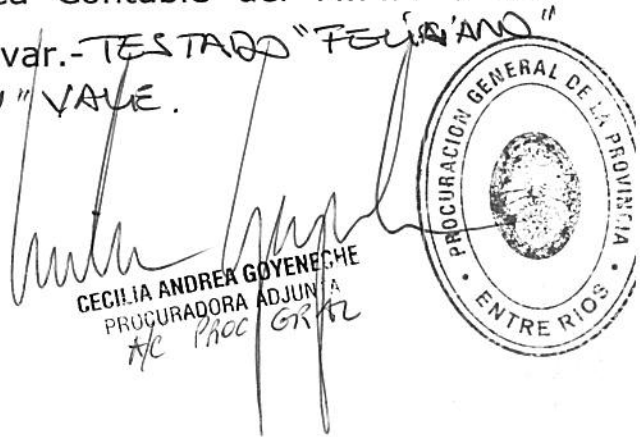 Contable del
var.- TESTADO "FELICIANO"
" VALE.
CECILIA ANDREA GOYENECHE
PROCURADORA ADJUNTA
A/C PROC GRAL
PROCURACION GENERAL DE LA PROVINCIA
• ENTRE RIOS •